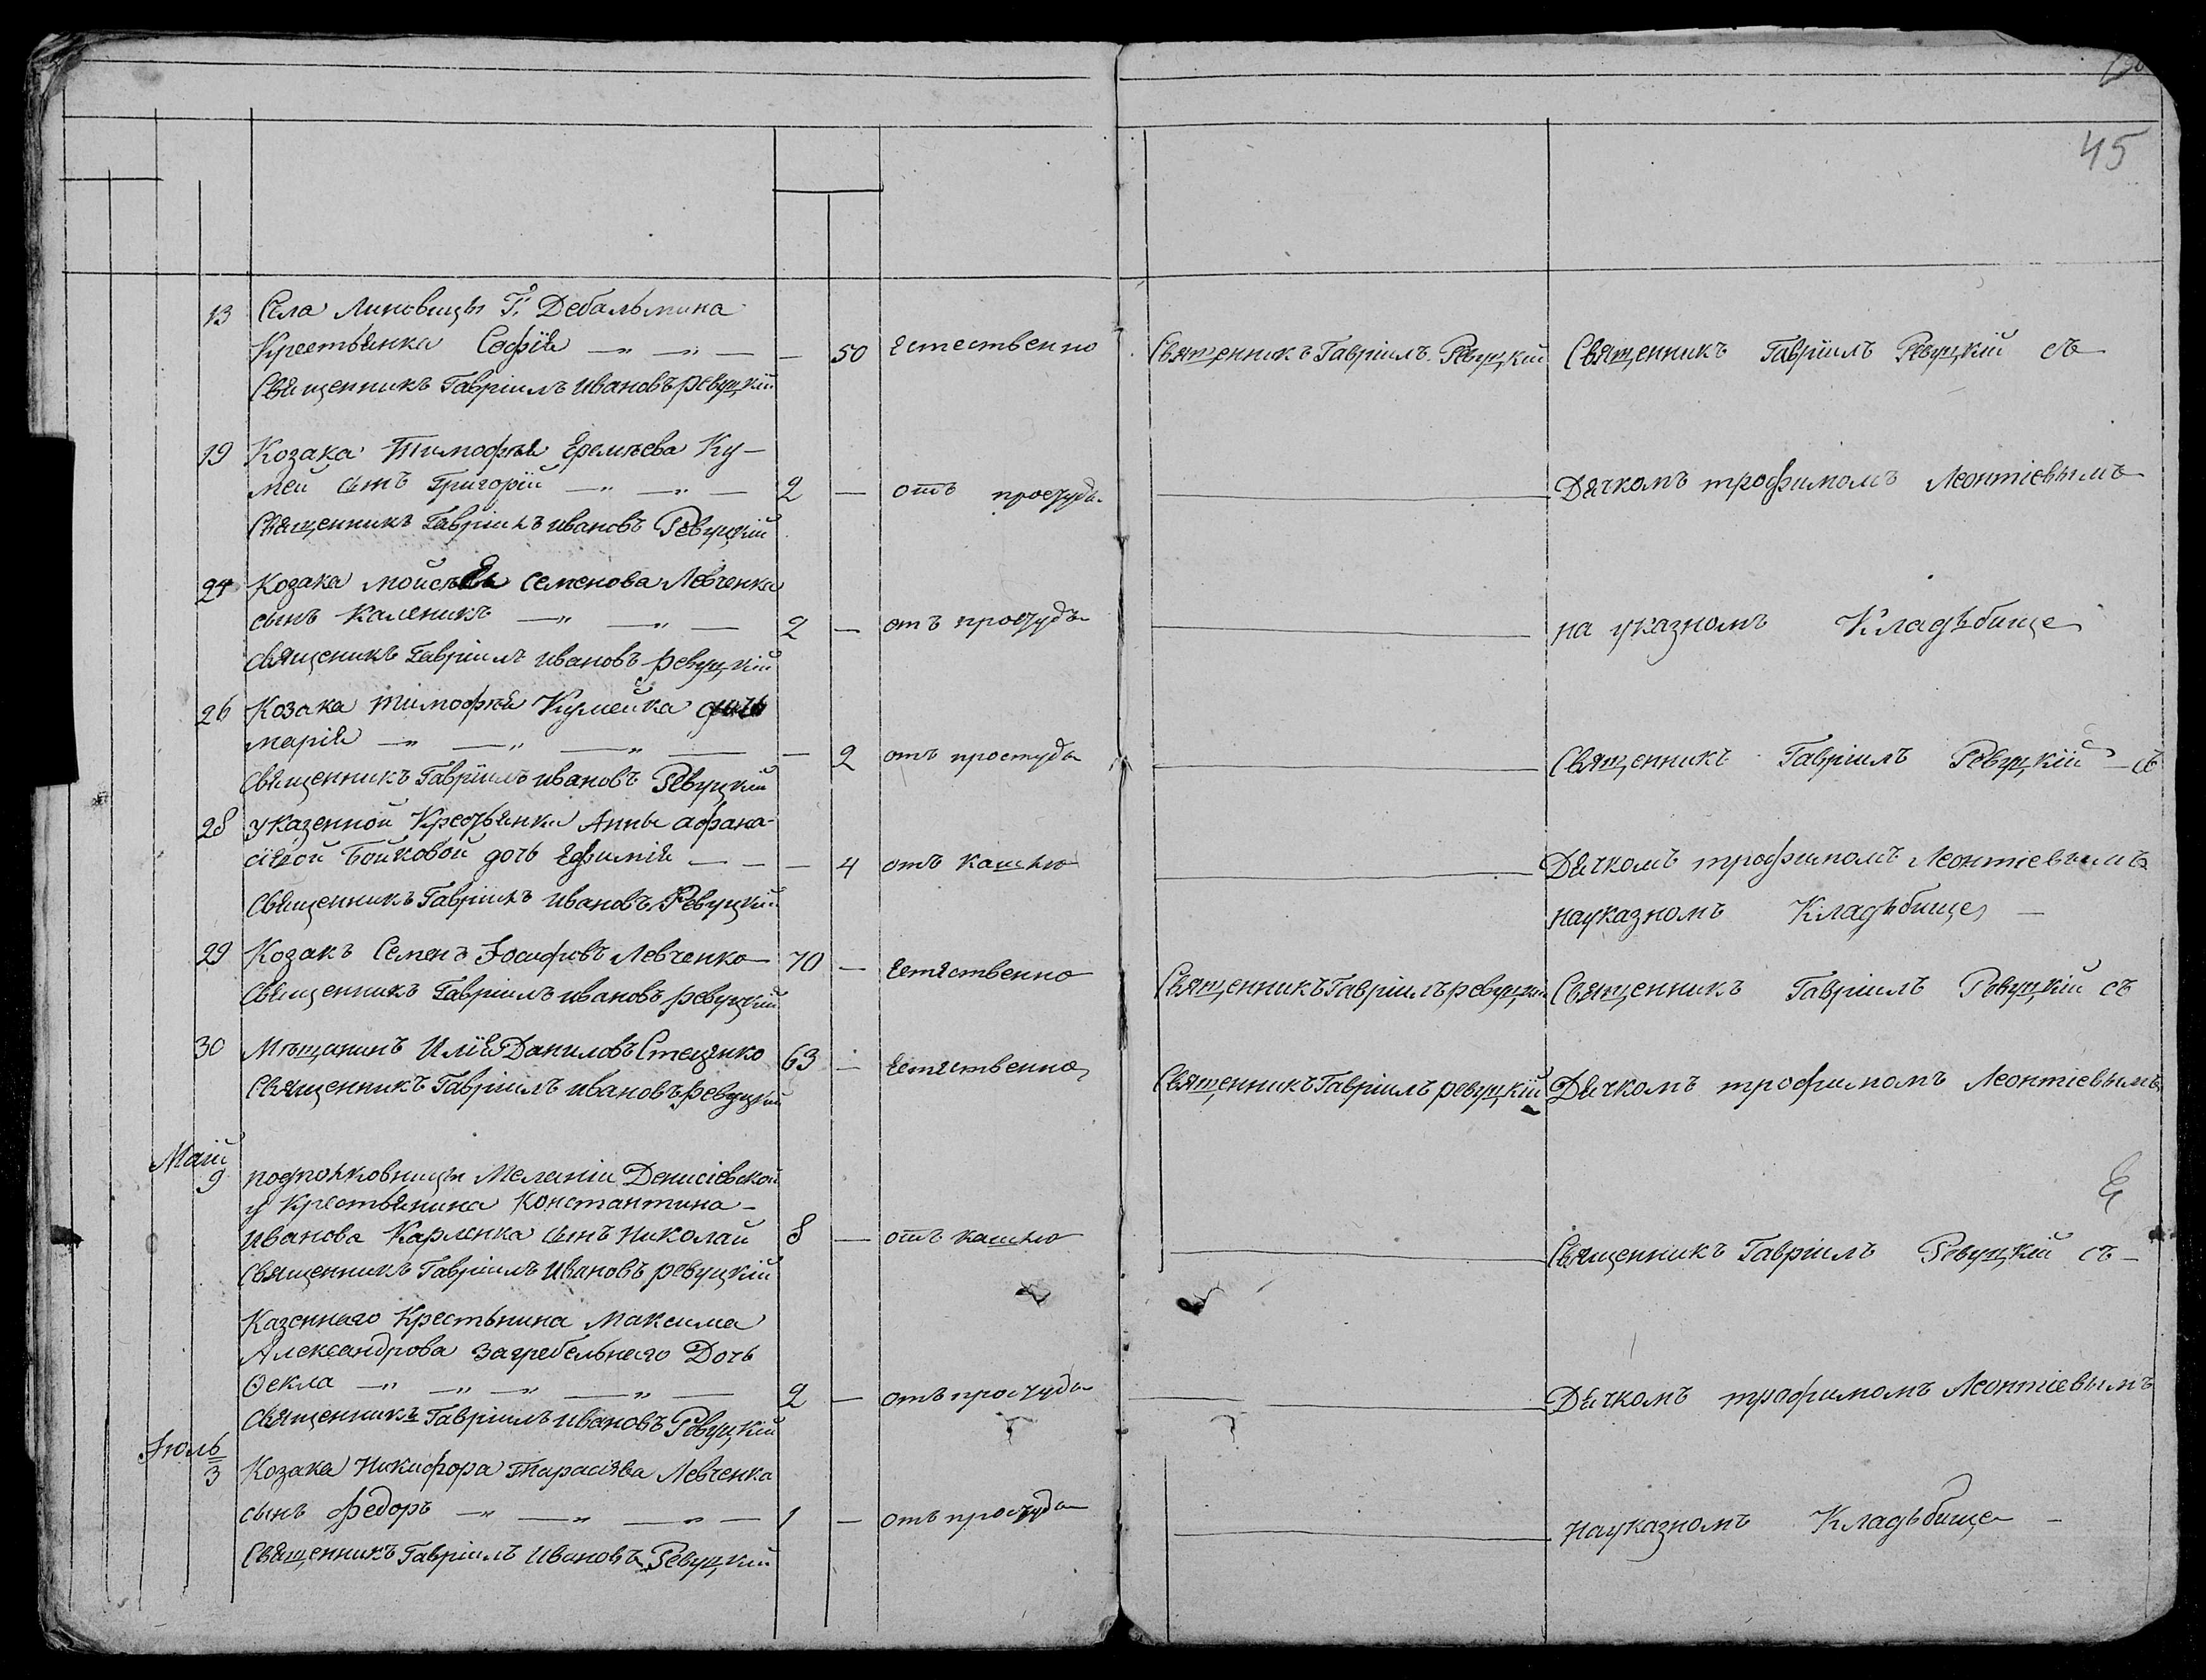 45
13 Села Линовицы Г. Дебальмина
Крестьянка Софія — „ — „ — — 50 Естественно Священникъ Гавріилъ Ревуцкій Священникъ Гавріилъ Ревуцкій съ
Священникъ Гавріилъ Ивановъ ревуцкій
19 Козака Тимофѣя Еремѣева Ку-
мей сынъ Григорій — „ — „ — 2 — отъ простуды — Дячкомъ трофимомъ Леонтіевымъ
Священникъ Гавріилъ Ивановъ Ревуцкій
24 Козака Мойсѣя Семенова Левченка
сынъ Каленикъ — „ — „ — 2 — отъ простуды — на указномъ Кладъбище
Священикъ Гавріилъ Ивановъ ревуцкій
26 Козака тимофѣя Кумейка дочь
марія — „ — „ — „ — — 2 отъ простуды — Священникъ Гавріилъ Ревуцкій съ
Священникъ Гавріилъ Ивановъ Ревуцкій
28 указенной Крестьянки Анны афана-
сіевой Бойковой дочь Ефимія — — — 4 отъ кашлю — Дячкомъ трофимомъ Леонтіевымъ
Священникъ Гавріилъ Ивановъ Ревуцкій науказномъ Кладъбище —
29 Козакъ Семенъ Іосифовъ Левченко 70 — Естественно Священникъ Гавріилъ ревуцкій Священникъ Гавріилъ Ревуцкій съ
Священникъ Гавріилъ Ивановъ ревуцкій
30 Мѣщанинъ Илія Даниловъ Стеценко 63 — Естественно Священникъ Гавріилъ ревуцкій Дячкомъ трофимомъ Леонтіевымъ
Священникъ Гавріилъ Ивановъ ревуцкій
Маій
9 подполковницы Меланіи Денисіевской
Крестьянина Константина
Иванова Карпенка сынъ Николай 8 — отъ кашлю — Священникъ Гавріилъ Ревуцкій съ —
Священникъ Гавріилъ Ивановъ ревуцкій
Казенного Крестьнина Максима
Александрова Загребельнаго Дочь
Ѳекла — „ — „ — „ — „ — 2 — отъ простуды — Дячкомъ трофимомъ Леонтіевымъ
Священникъ Гавріилъ Ивановъ Ревуцкій
Іюль
3 Козака Никифора Тарасіева Левченка
сынъ Федоръ — „ — „ — „ — 1 — отъ простуды — науказномъ Кладъбище —
Священникъ Гавріилъ Ивановъ Ревуцкій